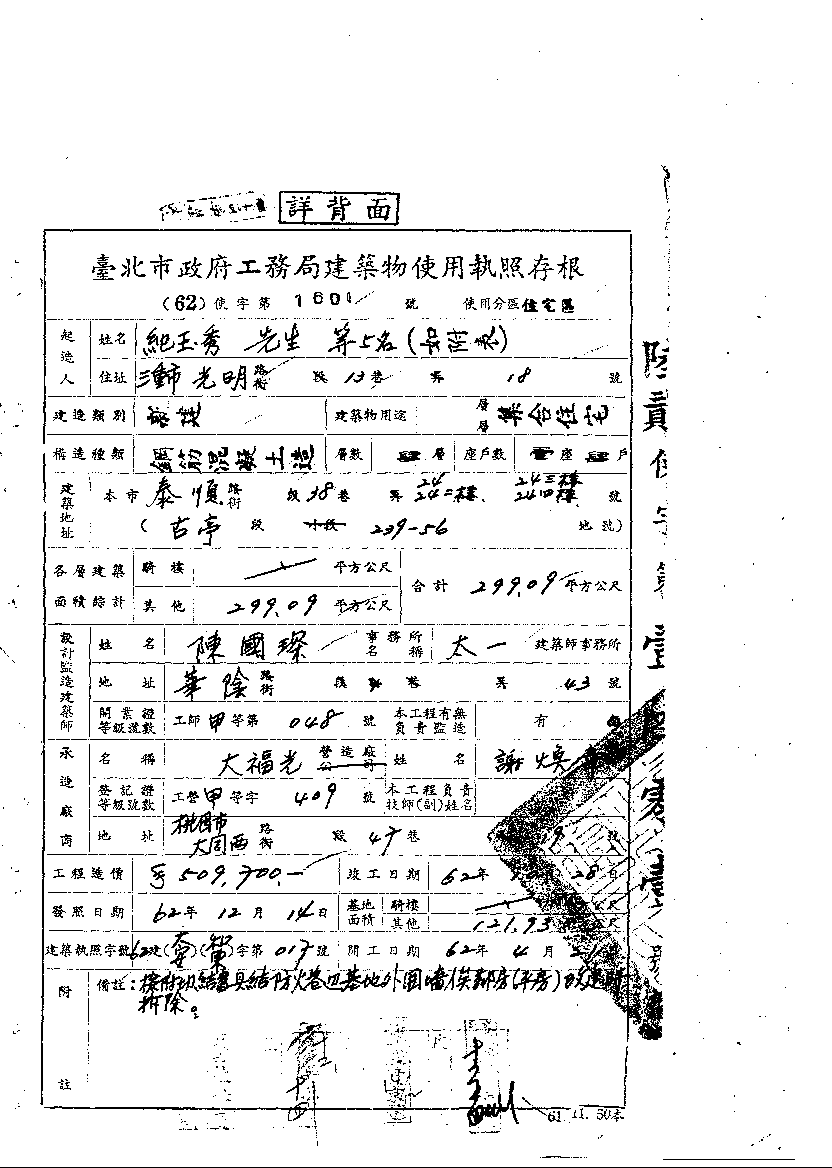 詳背面
臺北市政府工務局建築物使用執照存根
(62)使字第 1601 號 使用分區住宅區
起造人 姓名 紀玉秀 先生 等5名(如附表)
住址 三重市光明路街 段13巷 弄 18 號
建造類別 建築物用途 層層 集合住宅
構造種類 鋼筋混凝土造 層數 四層 座戶數 壹座四戶
建築地址 本市 泰順路街 段38巷 弄 24 24二樓、24三樓 24四樓 號
(古亭 段 小段 239-56 地號)
各層建築面積綜計 騎樓 平方公尺 合計 299.09 平方公尺
其他 299.09 平方公尺
設計監造建築師 姓名 陳國璨 事務所名稱 太一 建築師事務所
地址 華陰路街 段 巷 弄 43 號
開業證等級號數 工師甲等第 048 號 本工程有無負責監造 有
承造廠商 名稱 大福光營造廠公司 姓名 謝煥
登記證等級號數 工營甲等字 409 號 本工程負責技師(副)姓名
地址 桃園市大同西路街 段 47 巷 號
工程造價 509,700.- 竣工日期 62年 28日
發照日期 62年12月14日 基地面積 騎樓 尺
其他 121.93 尺
建築執照字號 62建( )( )字第 017 號 開工日期 62年4月2 日
附註 備註:
拆除。
61.11.50本
陸貳使字第壹陸零壹號